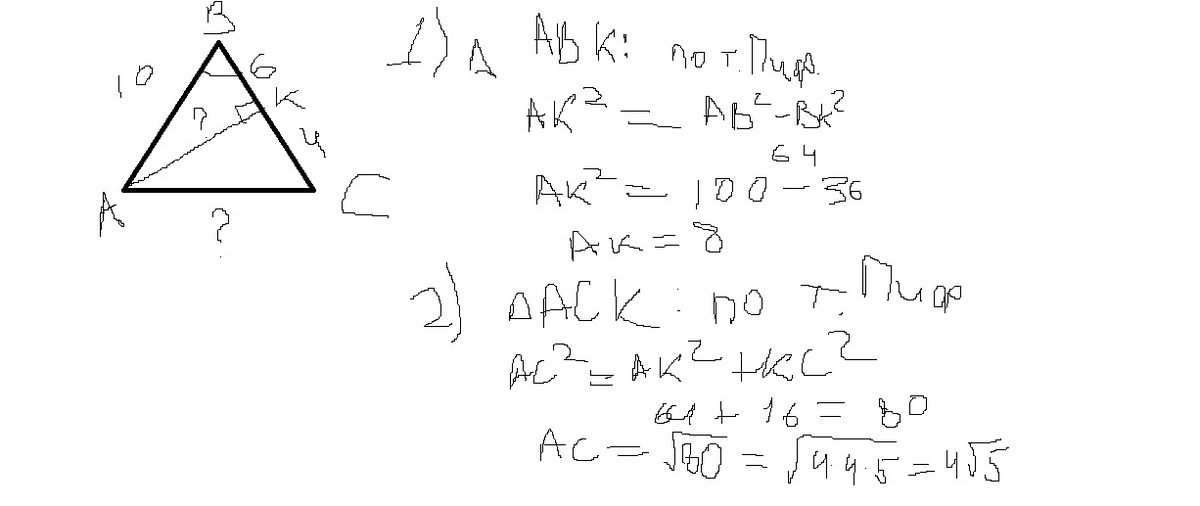 B
10
6
K
?
4
A
C
?
1) Δ ABK: по т. Пифр.
AK² = AB² - BK²
64
AK² = 100 - 36
AK = 8
2) ΔACK: по т. Пифр
AC² = AK² + KC²
64 + 16 = 80
AC = √80 = √4·4·5 = 4√5